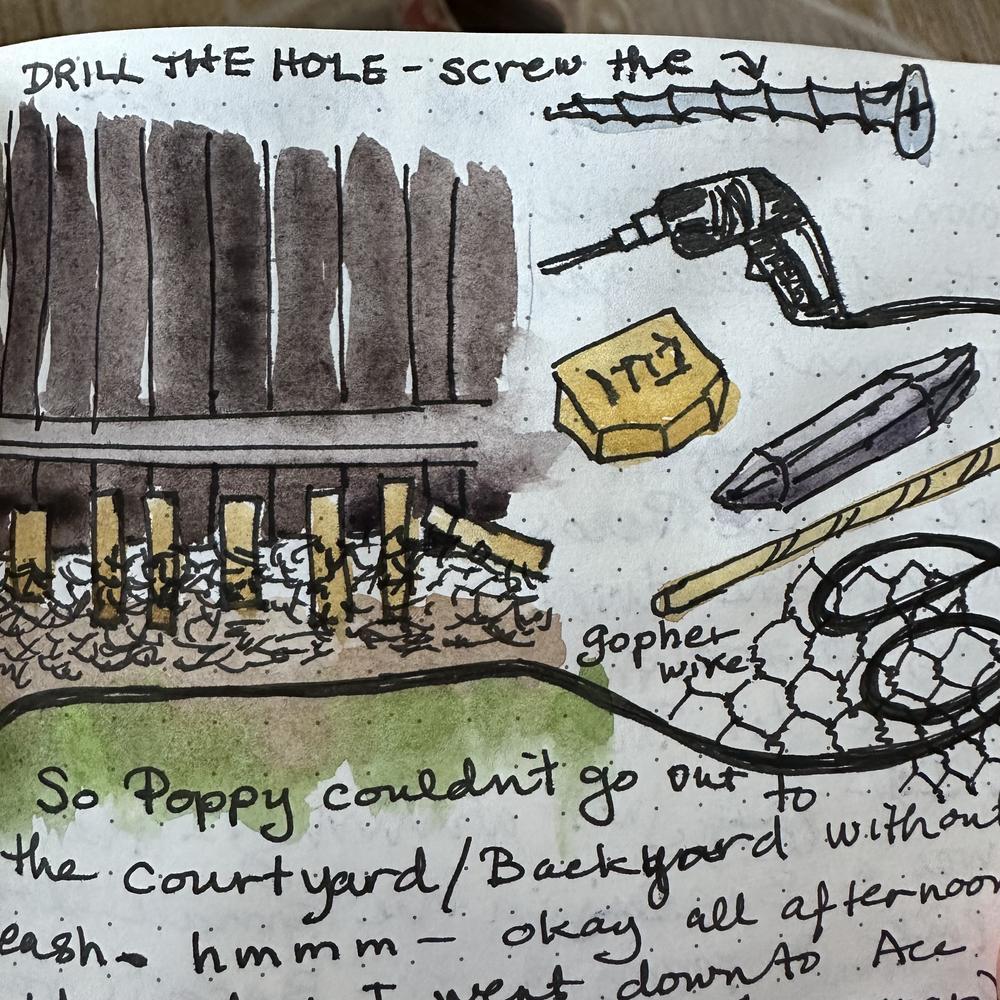 DRILL THE HOLE - screw the
gopher
wire
So Poppy couldn't go out to
the courtyard/Backyard without
eash. hmmm - okay all afternoon
I went down to Ace